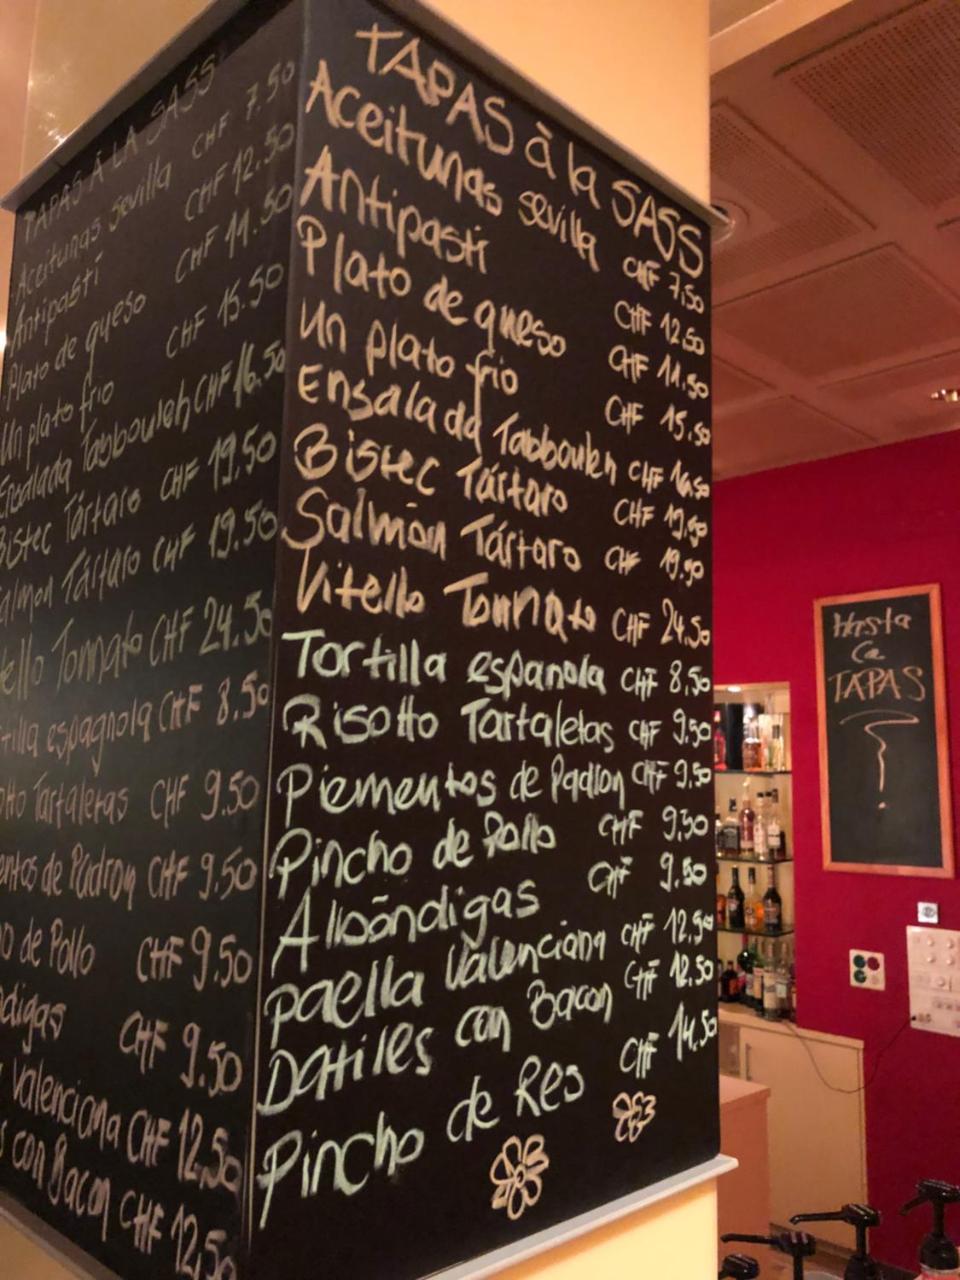 TAPAS À LA SASS
Aceitunas sevilla CHF 7.50
Antipasti CHF 12.50
Plato de queso CHF 11.50
Un plato frio CHF 15.50
Ensalada Tabbouleh CHF 16.50
Bistec Tártaro CHF 19.50
Salmon Tártaro CHF 19.50
tello Tonnato CHF 24.50
tilla espagnola CHF 8.50
otto Tartaletas CHF 9.50
entos de Padron CHF 9.50
o de Pollo CHF 9.50
digas CHF 9.50
Valenciana CHF 12.50
s con Bacon CHF 12.50
TAPAS à la SASS
Aceitunas sevilla CHF 7,50
Antipasti CHF 12.50
Plato de queso CHF 11.50
un plato frio CHF 15,50
Ensalada Tabbouleh CHF 16.50
Bistec Tártaro CHF 19.50
Salmón Tártaro CHF 19.50
Vitello Tonnato CHF 24.50
Tortilla espanola CHF 8,50
Risotto Tartaletas CHF 9.50
Piementos de Padron CHF 9.50
Pincho de Pollo CHF 9.50
Albóndigas CHF 9.50
paella Valenciana CHF 12,50
DATILES con Bacon CHF 12.50
Pincho de Res CHF 14.50
Hasta
La
TAPAS